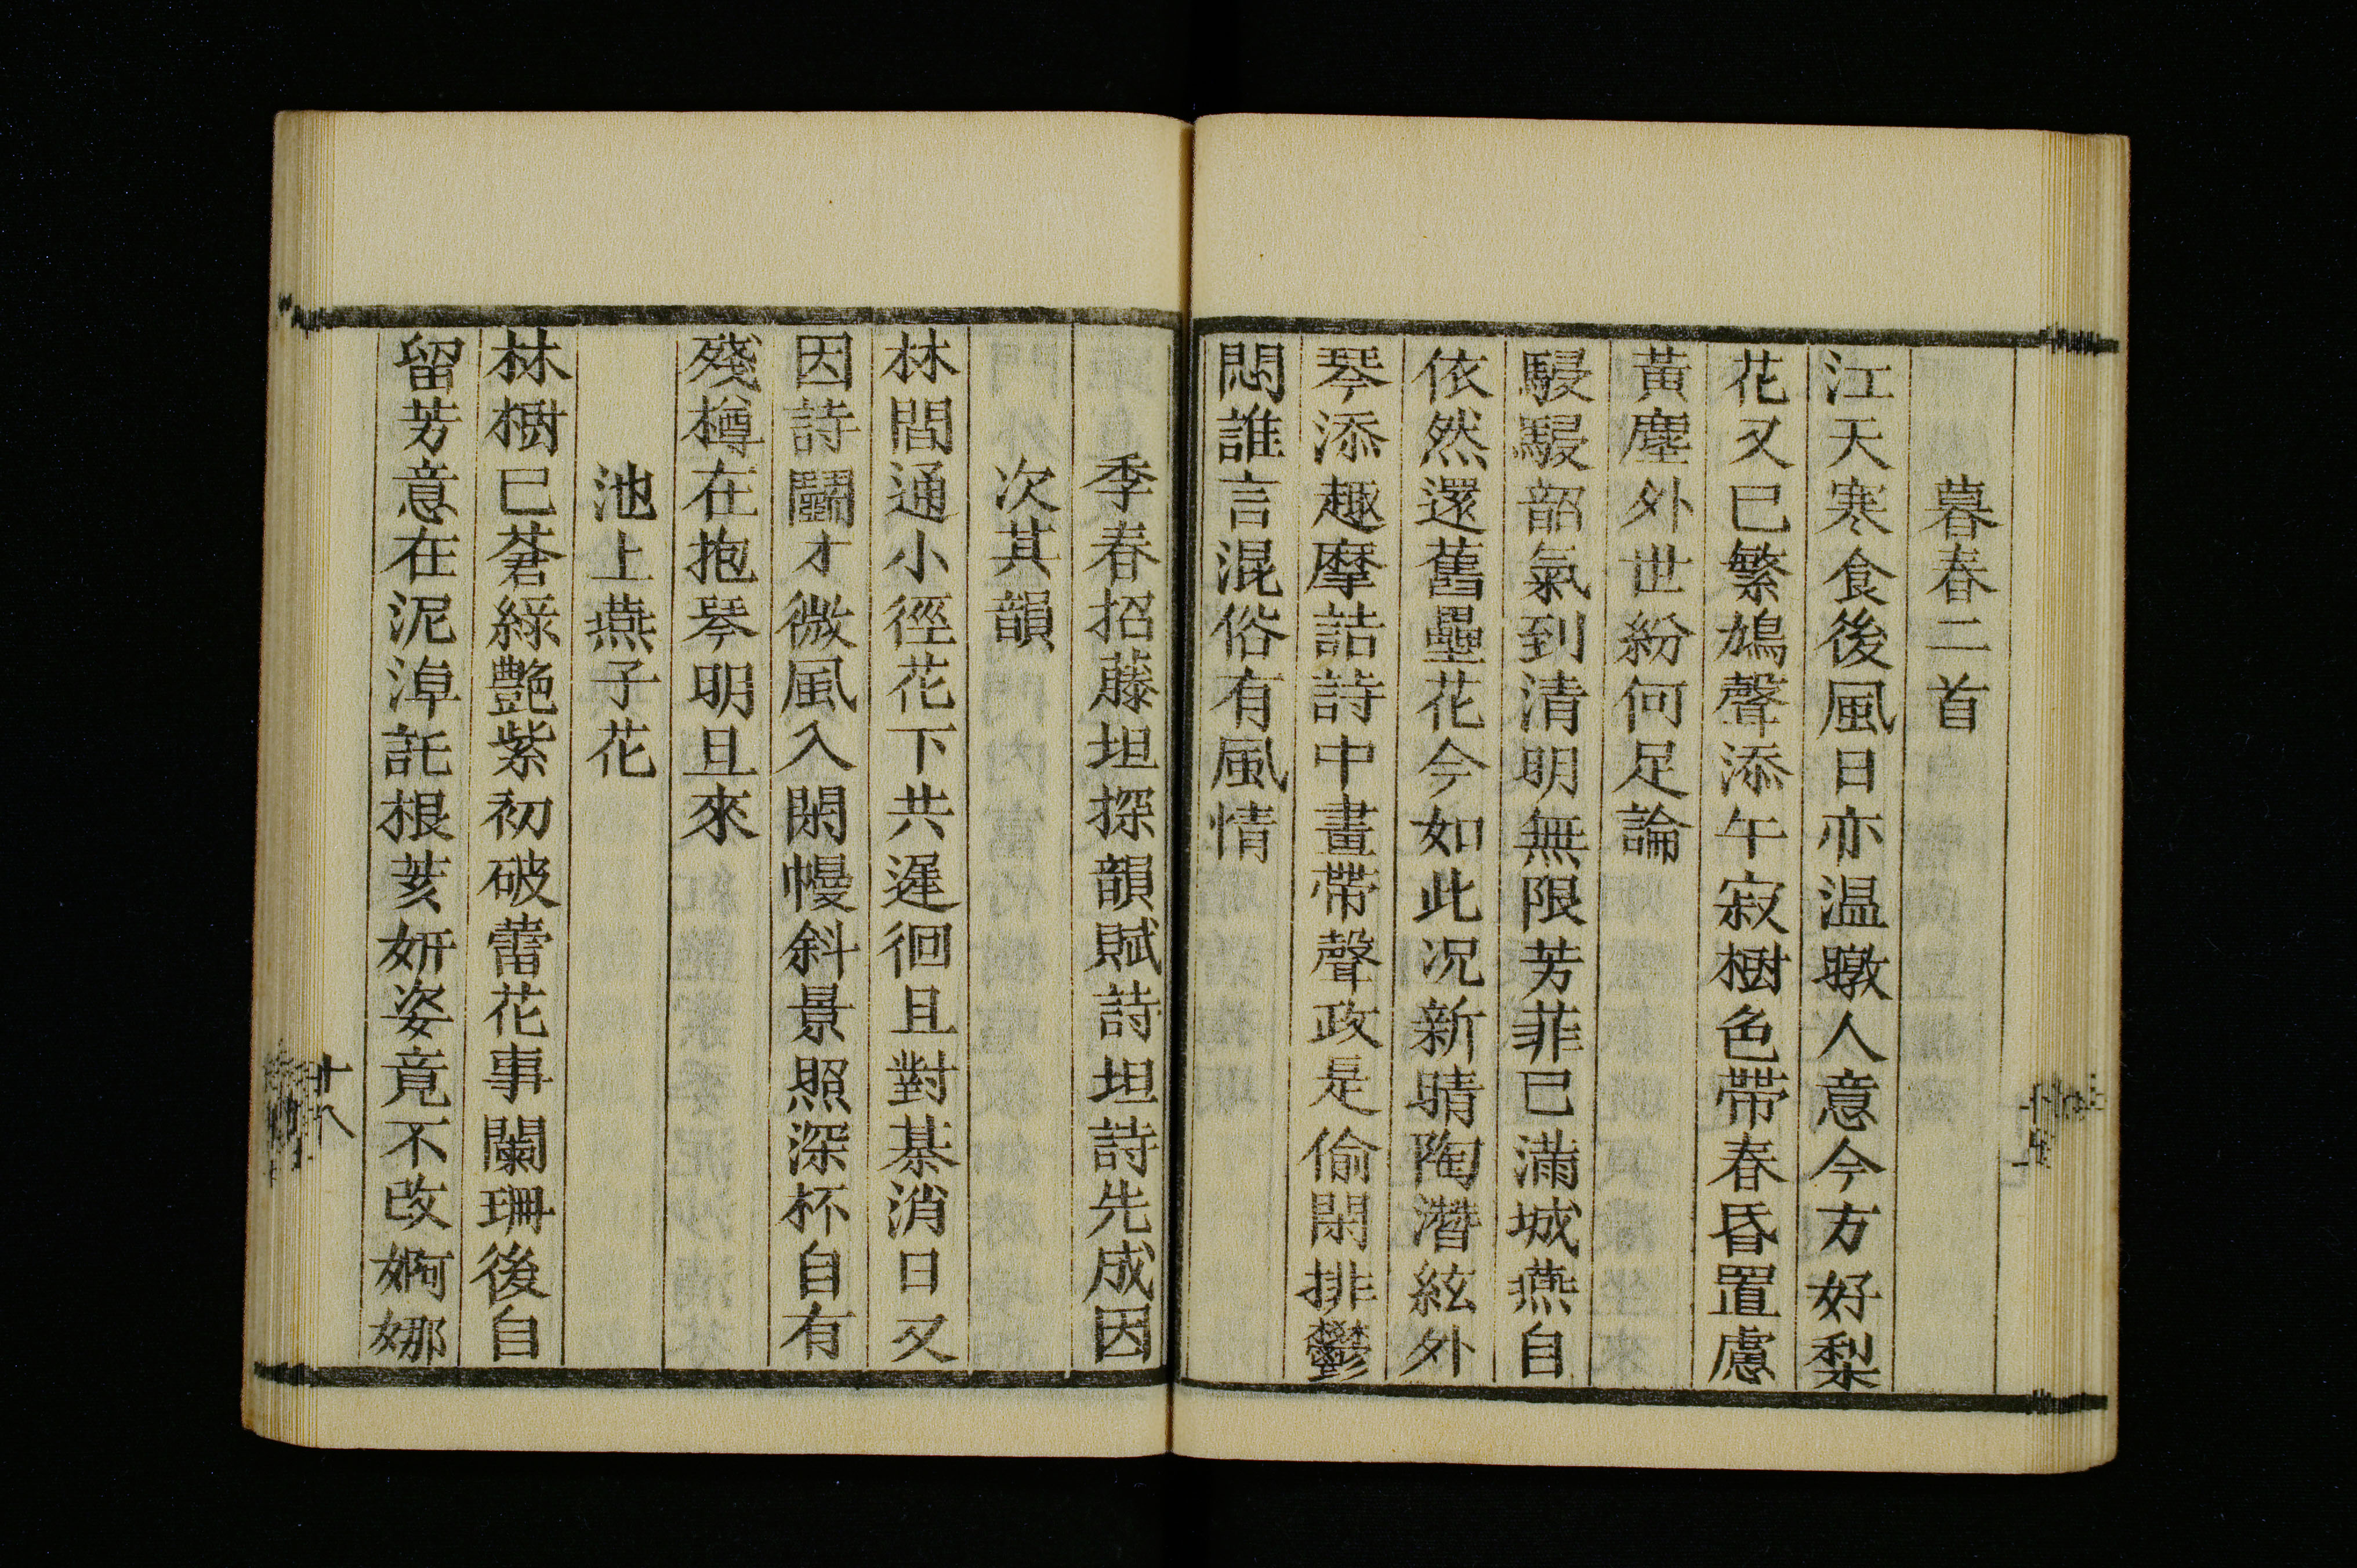 暮春二首
江天寒食後風日亦温暾人意今方好梨
花又已繁鳩聲添午寂樹色帶春昏置慮
黃塵外世紛何足論
駸駸韶氣到清明無限芳菲已滿城燕自
依然還舊壘花今如此况新晴陶潛絃外
琴添趣摩詰詩中畫帶聲政是偷閑排鬱
悶誰言混俗有風情
季春招藤坦探韻賦詩坦詩先成因
次其韻
林間通小徑花下共遲徊且對棊消日又
因詩鬭才微風入閑幔斜景照深杯自有
殘樽在抱琴明且來
池上燕子花
林樹已蒼綠艷紫初破蕾花事闌珊後自
留芳意在泥淖託根荄妍姿竟不改婀娜
十八